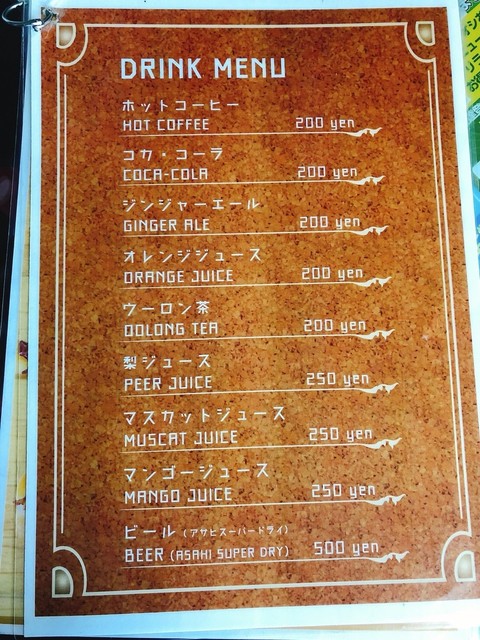 DRINK MENU
ホットコーヒー
HOT COFFEE 200 yen
コカ・コーラ
COCA-COLA 200 yen
ジンジャーエール
GINGER ALE 200 yen
オレンジジュース
ORANGE JUICE 200 yen
ウーロン茶
OOLONG TEA 200 yen
梨ジュース
PEER JUICE 250 yen
マスカットジュース
MUSCAT JUICE 250 yen
マンゴージュース
MANGO JUICE 250 yen
ビール(アサヒスーパードライ)
BEER (ASAHI SUPER DRY) 500 yen